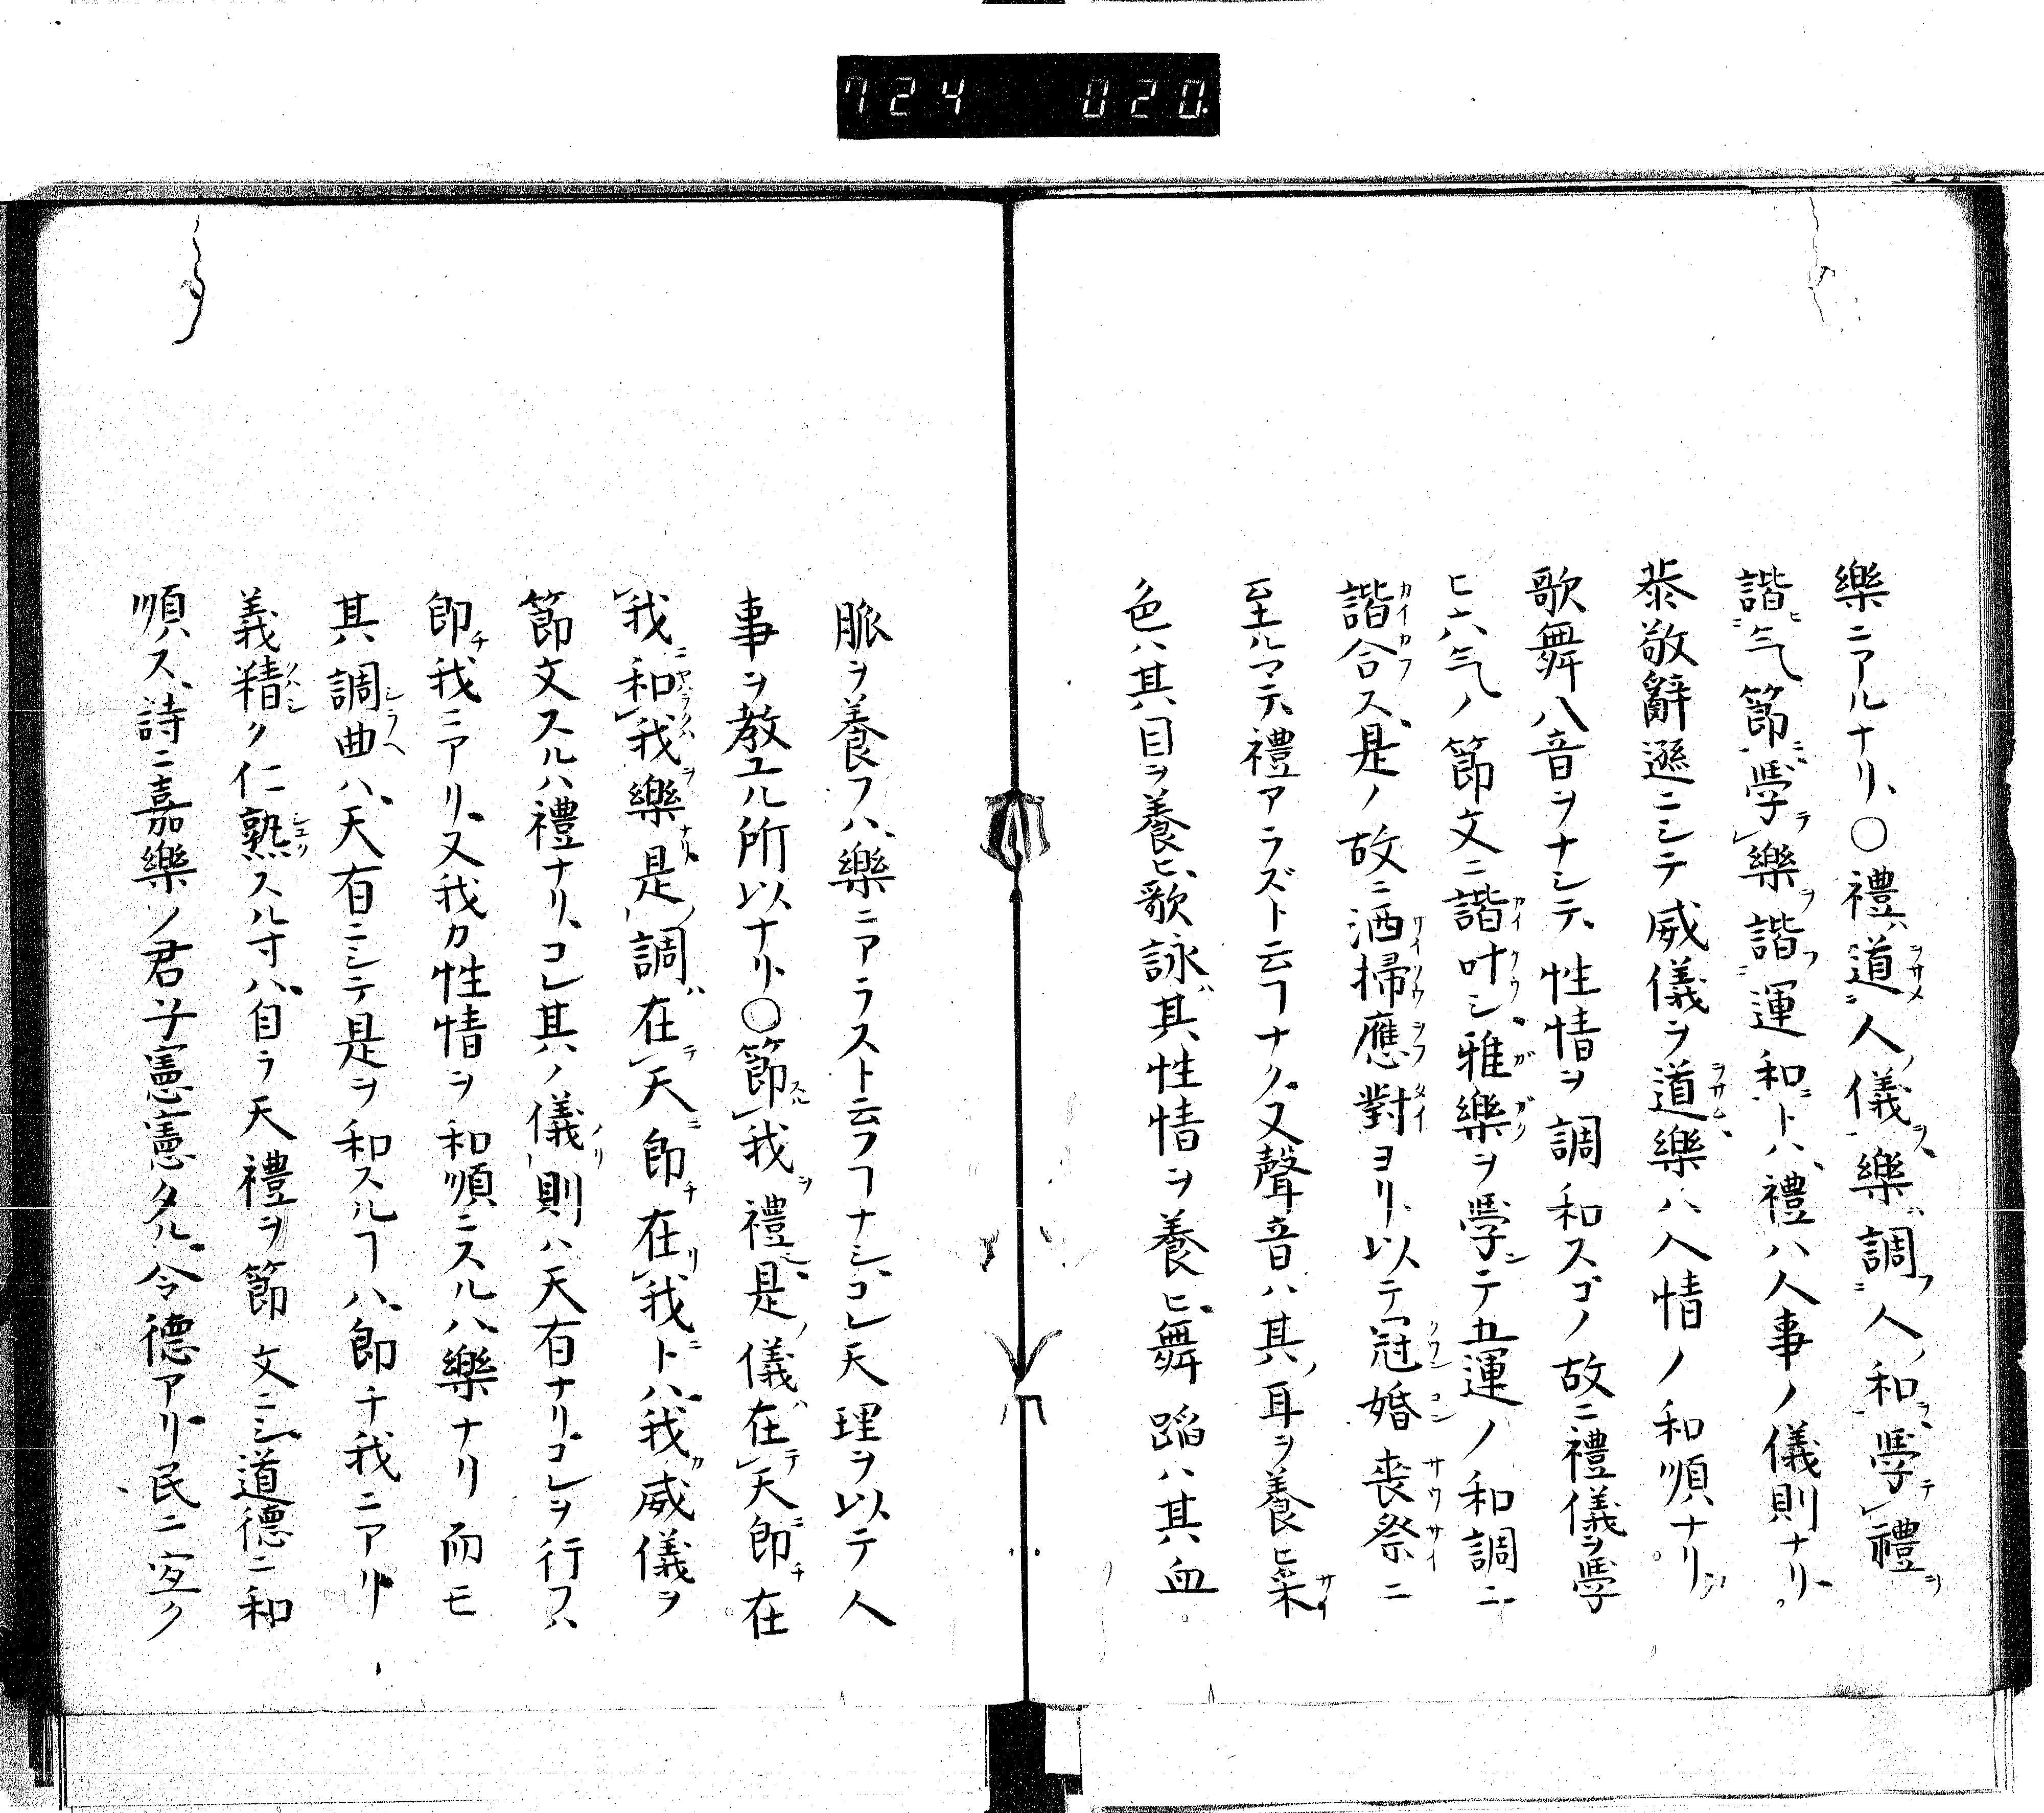 724 020.
樂ニアルナリ、○禮ハ道ニ人ノ儀ヲ、樂ハ調フニ人ノ和ヲ、學テ禮ヲ
諧ヒニ气節ニ、學テ樂ヲ諧フニ運和ニトハ、禮ハ人事ノ儀則ナリ、
恭敬辭遜ニシテ威儀ヲ道ヲサム、樂ハ人情ノ和順ナリ、
歌舞八音ヲナシテ、性情ヲ調和スコノ故ニ禮儀ヲ學
ヒ六气ノ節文ニ諧叶シ、雅樂ヲ學シテ五運ノ和調ニ
諧合ス、是ノ故ニ洒掃應對ヨリ、以テ冠婚喪祭ニ
至ルマテ、禮アラズト云ヿナク、又聲音ハ其ノ耳ヲ養ヒ采
色ハ其ノ目ヲ養ヒ、歌詠ハ其ノ性情ヲ養ヒ、舞蹈ハ其ノ血
脈ヲ養フハ、樂ニアラスト云フヿナシ、コレ天理ヲ以テ人
事ヲ教ユル所以ナリ、○節スル我ヲ禮ニ、是ノ儀ハ在テ天ニ即チ在
我ニ、和ヤラクハ我ヲ樂ナリ、是ノ調ハ在テ天ニ即チ在リ我ニトハ、我カ威儀ヲ
節文スルハ禮ナリ、コレ其ノ儀ノリ則ハ天有ナリ、コレヲ行フハ
即チ我ニアリ、又我カ性情ヲ和順ニスルハ、樂ナリ而モ
其ノ調シラヘ曲ハ、天有ニシテ是ヲ和スルヿハ、即チ我ニアリ
義精クハシク仁熟スル寸ハ、自ラ天禮ヲ節文ニシ、道德ニ和
順ス、詩ニ嘉樂ノ君子憲憲タル、令德アリ、民ニ宐ク